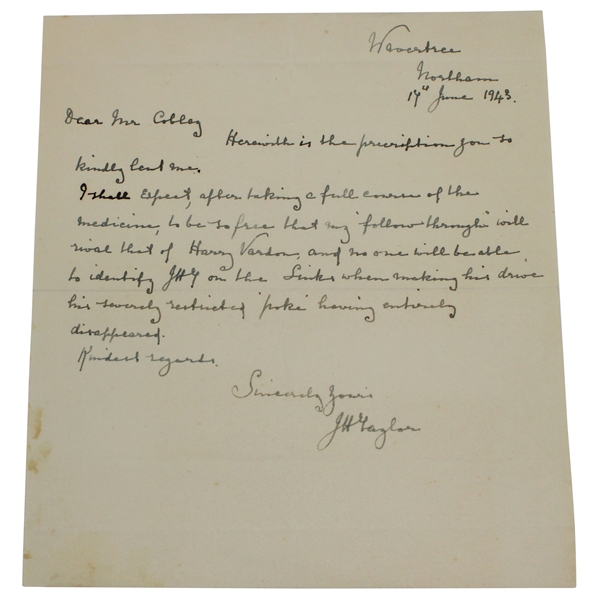 Wavertree
Northam
17th June 1943.
Dear Mr Cobley
Herewith is the prescription you so
kindly lent me.
I shall expect, after taking a full course of the
medicine, to be so free that my "follow through" will
rival that of Harry Vardon, and no one will be able
to identify JHT on the Links when making his drive
his severely restricted 'poke' having entirely
disappeared.
Kindest regards.
Sincerely Yours
JHTaylor